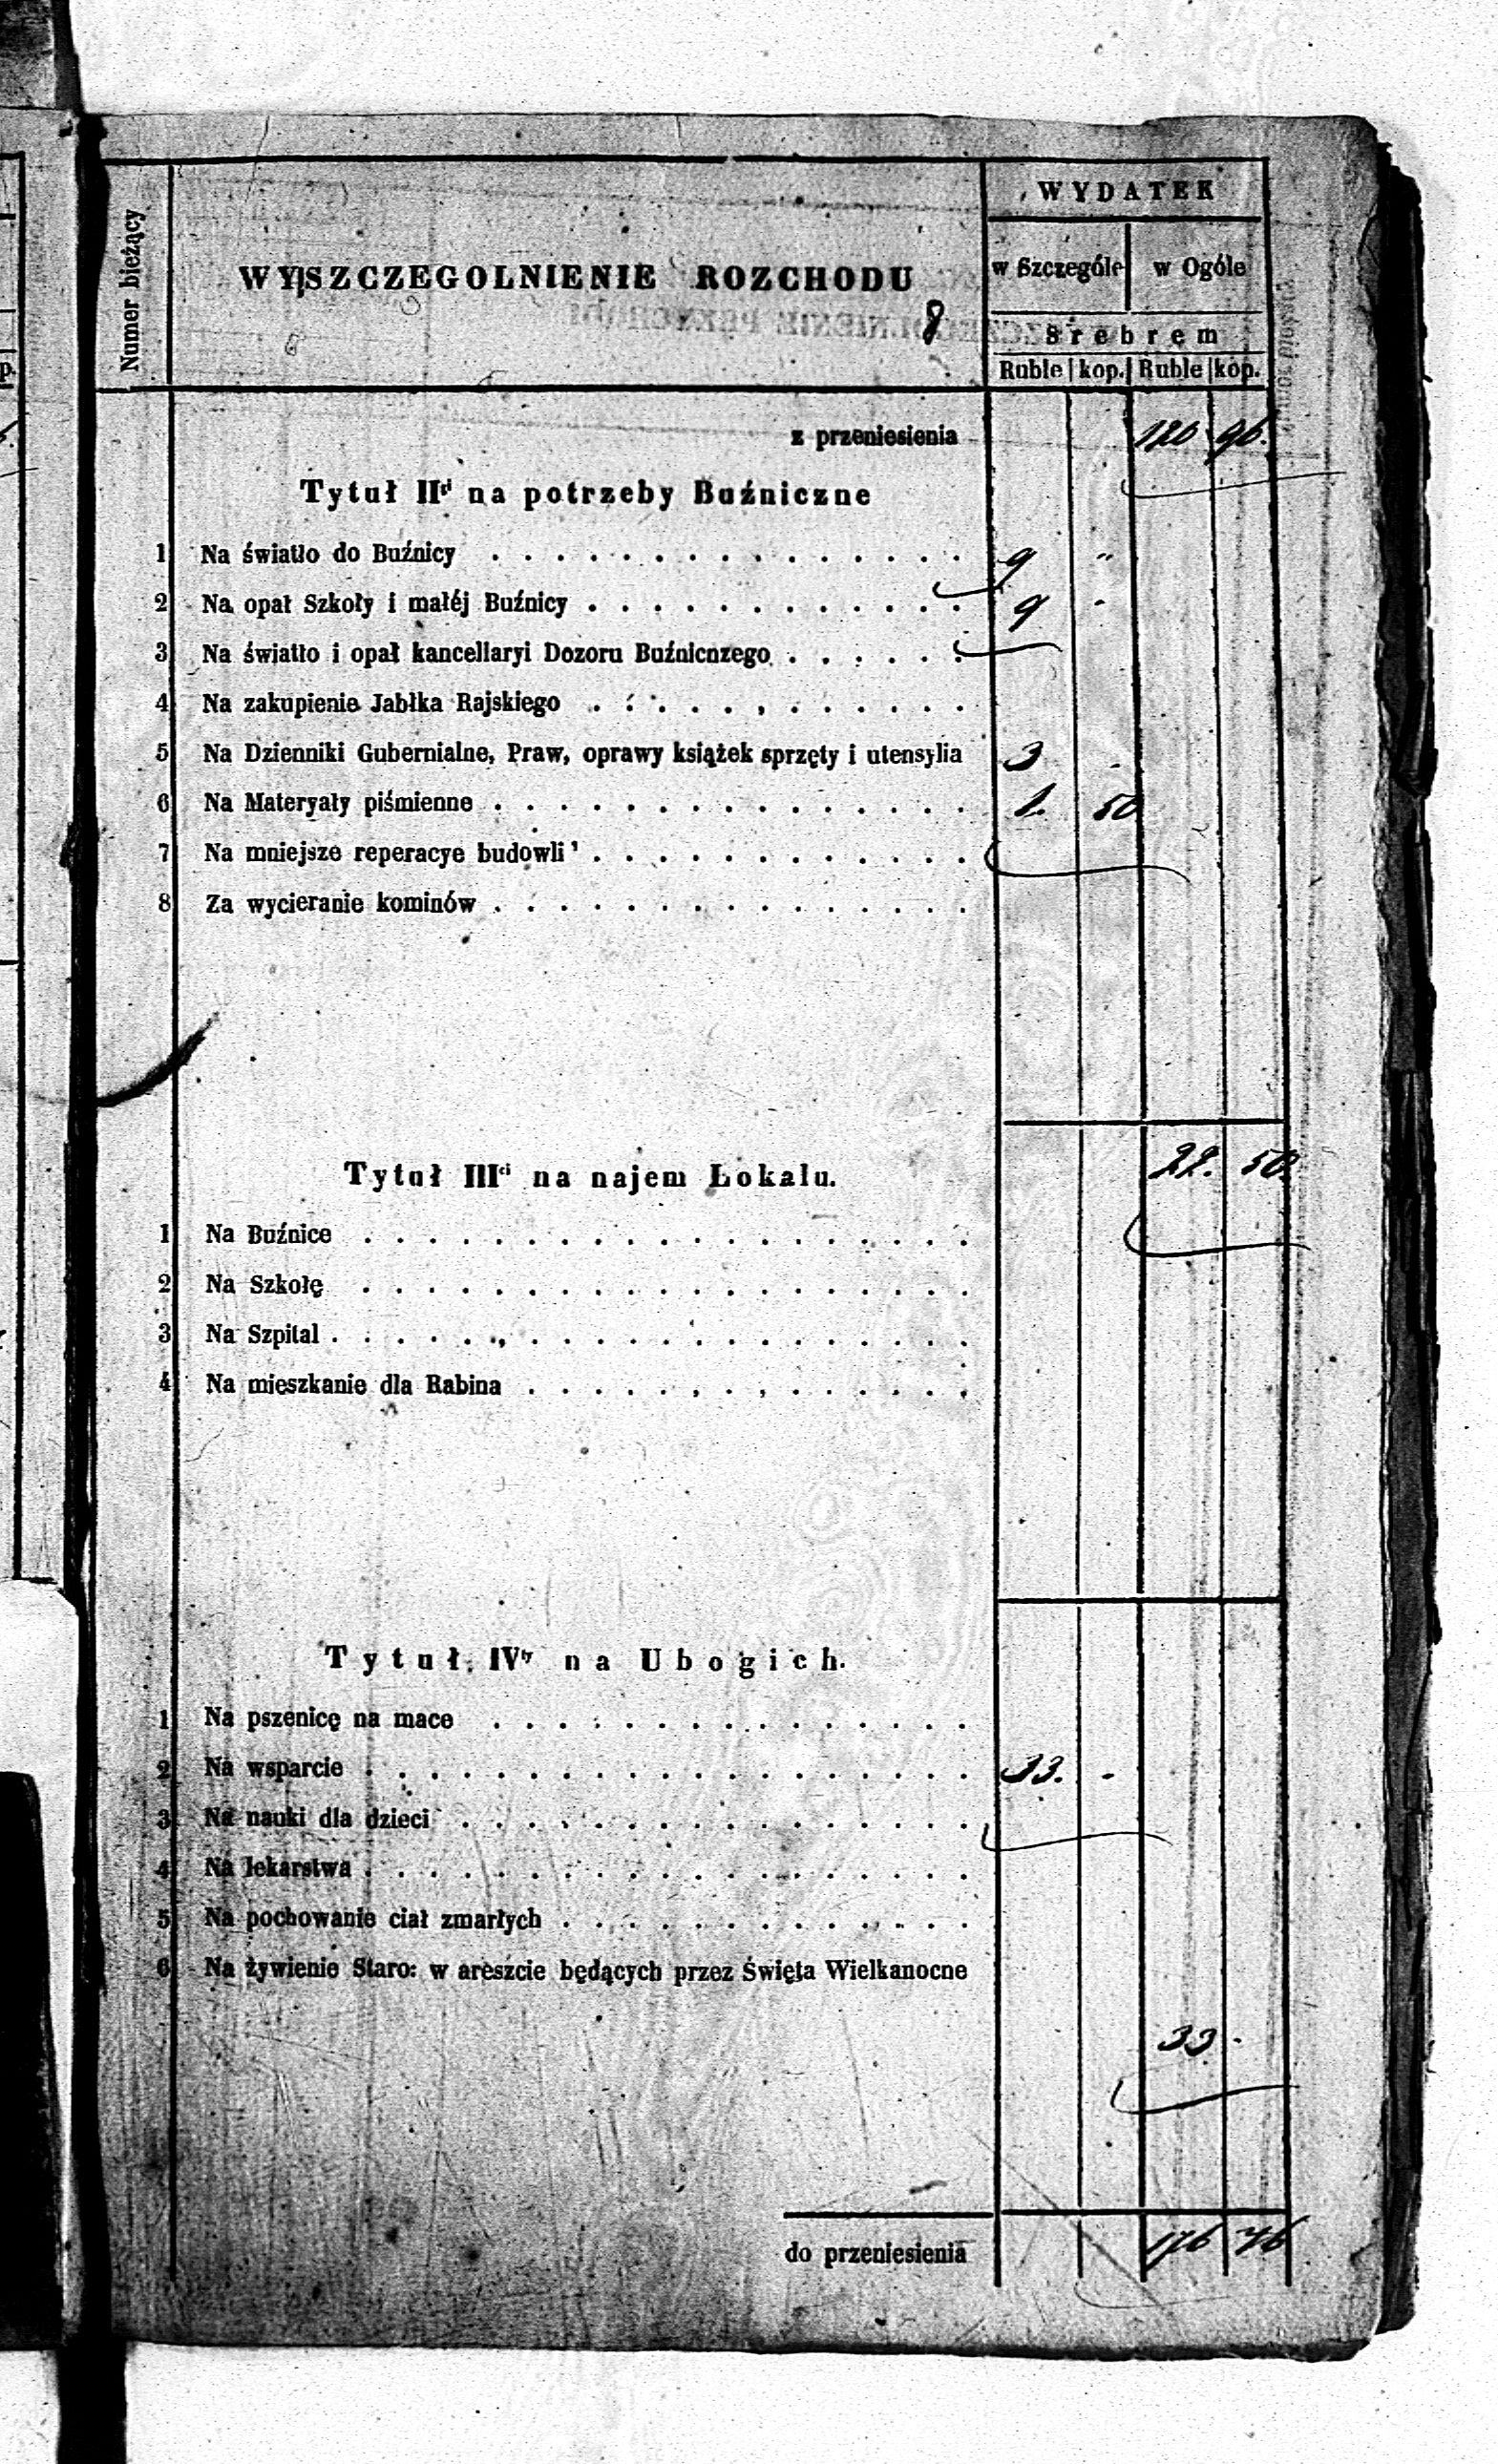 Numer bieżący
WYSZCZEGOLNIENIE ROZCHODU
8
WYDATEK
w Szczególe w Ogóle
Srebrem
Ruble kop. Ruble kop.
z przeniesienia 120 96.
Tytuł IIgi na potrzeby Buźniczne
1 Na światło do Buźnicy 9 "
2 Na opał Szkoły i małéj Buźnicy 9 -
3 Na światło i opał kancellaryi Dozoru Buźnicnzego
4 Na zakupienie Jabłka Rajskiego
5 Na Dzienniki Gubernialne, Praw, oprawy książek sprzęty i utensylia 3 -
6 Na Materyały piśmienne 1. 50
7 Na mniejsze reperacye budowli
8 Za wycieranie kominów
22. 50.
Tytuł IIIci na najem Lokalu.
1 Na Buźnice
2 Na Szkołę
3 Na Szpital
4 Na mieszkanie dla Rabina
Tytuł IVty na Ubogich.
1 Na pszenicę na mace
2 Na wsparcie 33. -
3 Na nauki dla dzieci
4 Na lekarstwa
5 Na pochowanie ciał zmarłych
6 Na żywienie Staro: w areszcie będących przez Święta Wielkanocne
33 -
do przeniesienia 176 46